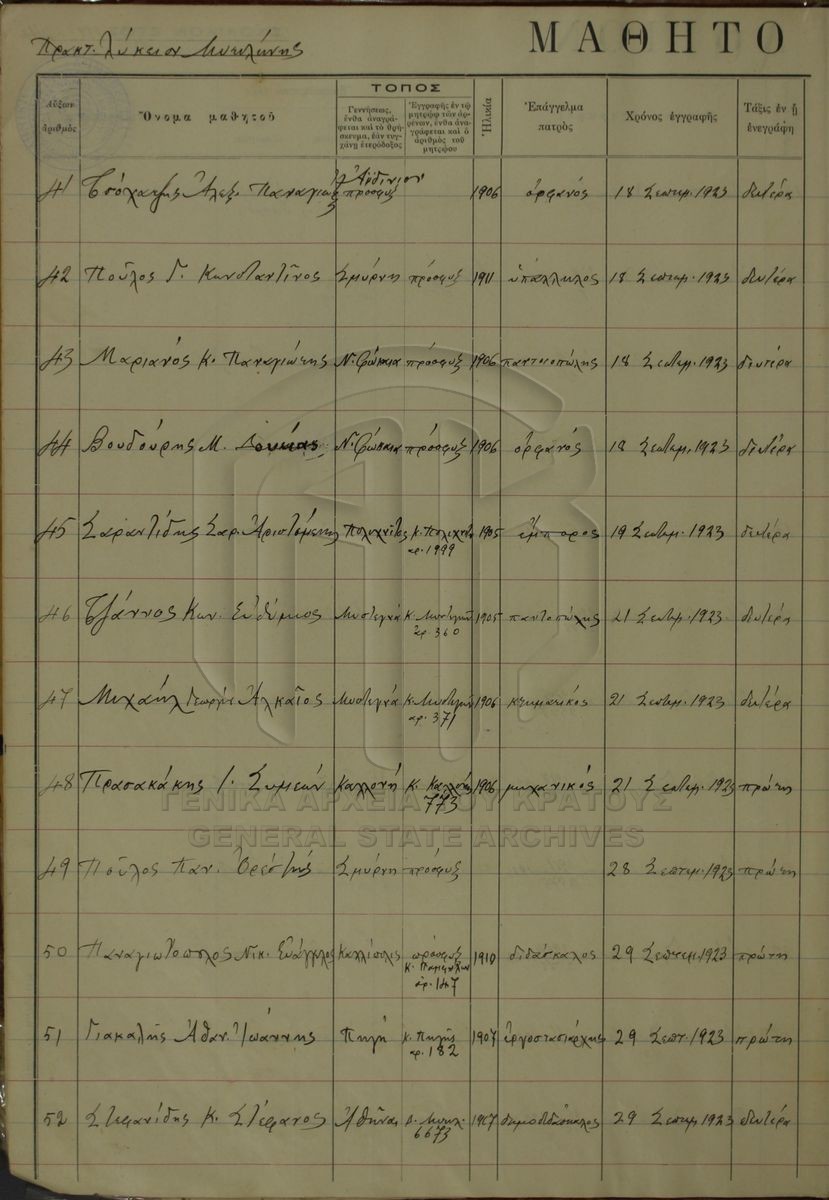 Πρακτ. Λύκειον Μυτιλήνης
ΜΑΘΗΤΟ
Αὔξων ἀριθμὸς
Ὄνομα μαθητοῦ
ΤΟΠΟΣ
Γεννήσεως, ἔνθα ἀναγράφεται καὶ τὸ θρήσκευμα, ἐὰν τυγχάνῃ ἑτερόδοξος
Ἐγγραφῆς ἐν τῷ μητρῴῳ τῶν ἀρρένων, ἔνθα ἀναγράφεται καὶ ὁ ἀριθμὸς τοῦ μητρῴου
Ἡλικία
Ἐπάγγελμα πατρὸς
Χρόνος ἐγγραφῆς
Τάξις ἐν ᾗ ἐνεγράφη
41 Ἀλεξ. Παναγιώτης Ἀϊδίνιον πρόσφυξ 1906 ὀρφανός 18 Σεπτεμ. 1923 δευτέρα
42 Ποῦλος Γ. Κωνσταντῖνος Σμύρνη πρόσφυξ 1911 ὑπάλληλος 18 Σεπτεμ. 1923 δευτέρα
43 Μαριανός Κ. Παναγιώτης Ν. Φώκαια πρόσφυξ 1906 παντοπώλης 18 Σεπτεμ. 1923 δευτέρα
44 Βουδούρης Μ. Ν. Φώκαια πρόσφυξ 1906 ὀρφανός 18 Σεπτεμ. 1923 δευτέρα
45 Σαραντίδης Σαρ. Ἀριστομένης Πολιχνῖτος Κ. Πολιχνίτου ἀρ. 1999 1905 ἔμπορος 19 Σεπτεμ. 1923 δευτέρα
46 Τζάννος Κων. Εὐθύμιος Μιστεγνά Κ. Μιστεγνῶν ἀρ 360 1905 παντοπώλης 21 Σεπτεμ. 1923 δευτέρα
47 Μιχαήλ Γεωργίου Ἀλκαῖος Μιστεγνά Κ. Μιστεγνῶν ἀρ. 371 1906 κτηματικός 21 Σεπτεμ. 1923 δευτέρα
48 Πρασακάκης Ι. Συμεών Καλλονή Κ. Καλλονῆς 773 1906 μηχανικός 21 Σεπτεμ. 1923 πρώτη
ΓΕΝΙΚΑ ΑΡΧΕΙΑ ΤΟΥ ΚΡΑΤΟΥΣ
GENERAL STATE ARCHIVES
49 Ποῦλος Παν. Ὀρέστης Σμύρνη πρόσφυξ 28 Σεπτεμ. 1923 πρώτη
50 Παναγιωτόπουλος Νικ. Εὐάγγελος Καλλίπολις πρόσφυξ Κ. Παμφίλων ἀρ. 147 1910 διδάσκαλος 29 Σεπτεμ. 1923 πρώτη
51 Γιακαλῆς Ἀθαν. Ἰωάννης Πηγή Κ. Πηγῆς ἀρ. 182 1907 ἐργοστασιάρχης 29 Σεπτ. 1923 πρώτη
52 Στεφανίδης Κ. Στέφανος Ἀθῆναι Δ. Μυτιλ. 6673 1907 δημοδιδάσκαλος 29 Σεπτεμ 1923 δευτέρα